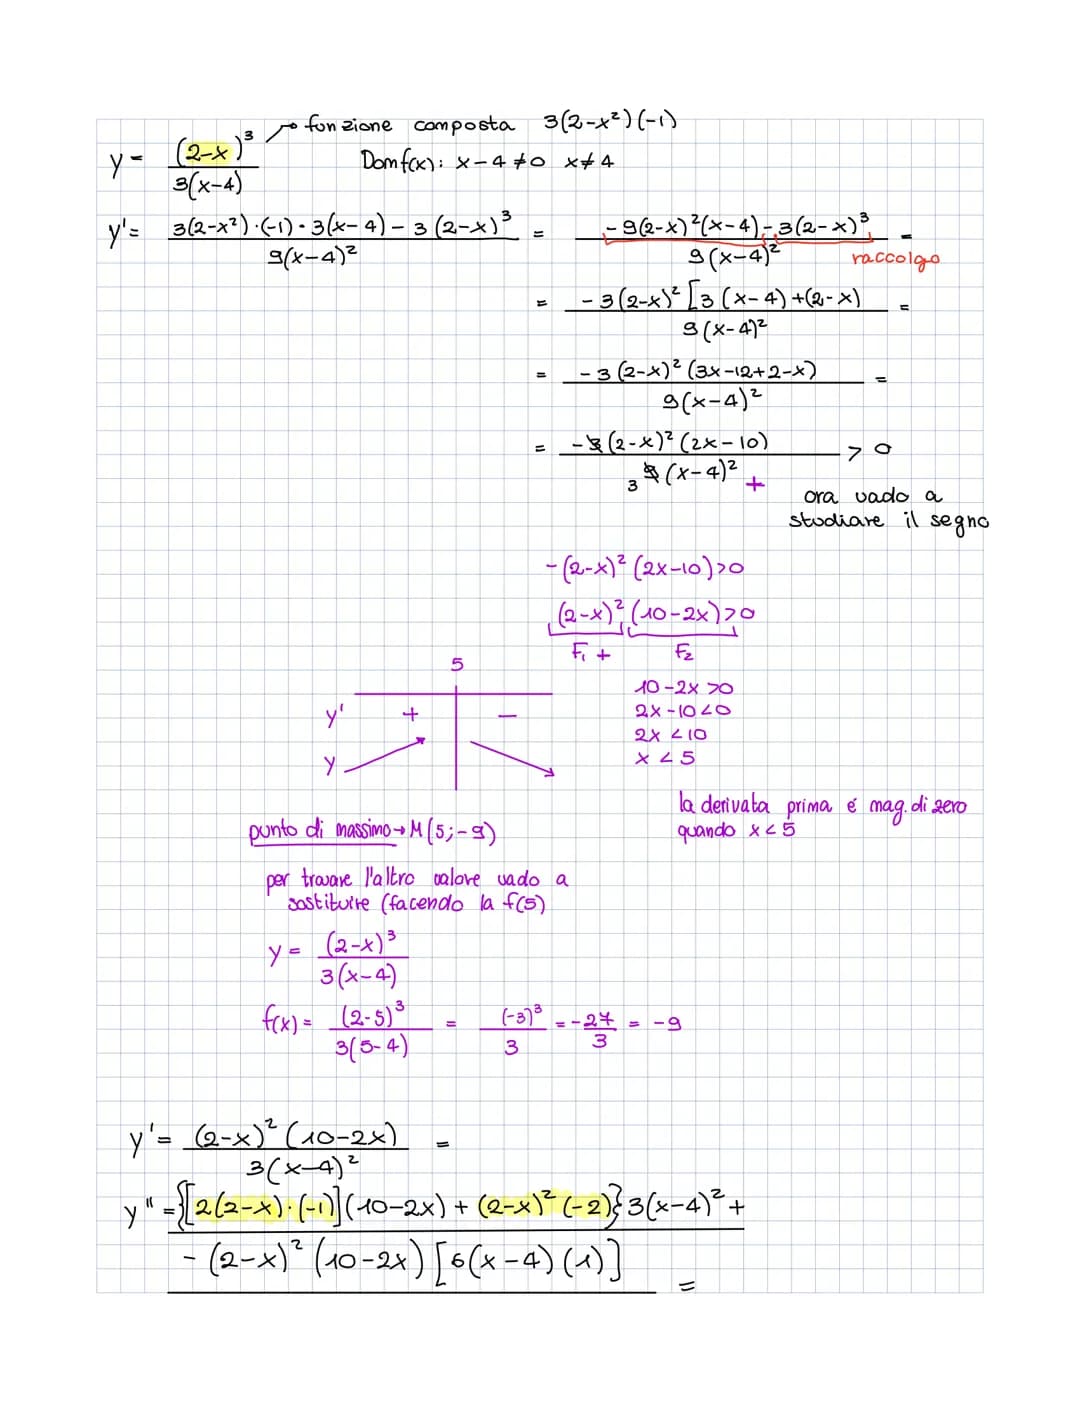 y = (2-x)³ / 3(x-4) → funzione composta 3(2-x²)(-1)
Domf(x): x-4≠0 x≠4
y'= 3(2-x²)·(-1)·3(x-4)-3(2-x)³ / 9(x-4)² = -9(2-x)²(x-4)-3(2-x)³ / 9(x-4)² =
raccolgo
= -3(2-x)²[3(x-4)+(2-x) / 9(x-4)² =
= -3(2-x)²(3x-12+2-x) / 9(x-4)² =
= -3(2-x)²(2x-10) / 3 9(x-4)² + > 0
ora vado a
studiare il segno
-(2-x)²(2x-10)>0
(2-x)²(10-2x)>0
F₁ + F₂
5
y' + -
y
10-2x>0
2x-10<0
2x<10
x<5
la derivata prima é mag. di zero
quando x<5
punto di massimo→M(5;-9)
per trovare l'altro valore vado a
sostituire (facendo la f(5)
y = (2-x)³ / 3(x-4)
f(x) = (2-5)³ / 3(5-4) = (-3)³ / 3 = -27 / 3 = -9
y'= (2-x)²(10-2x) / 3(x-4)² =
y" ={[2(2-x)·(-1)](10-2x)+(2-x)²(-2)}3(x-4)²+
-(2-x)²(10-2x)[6(x-4)(1)] =